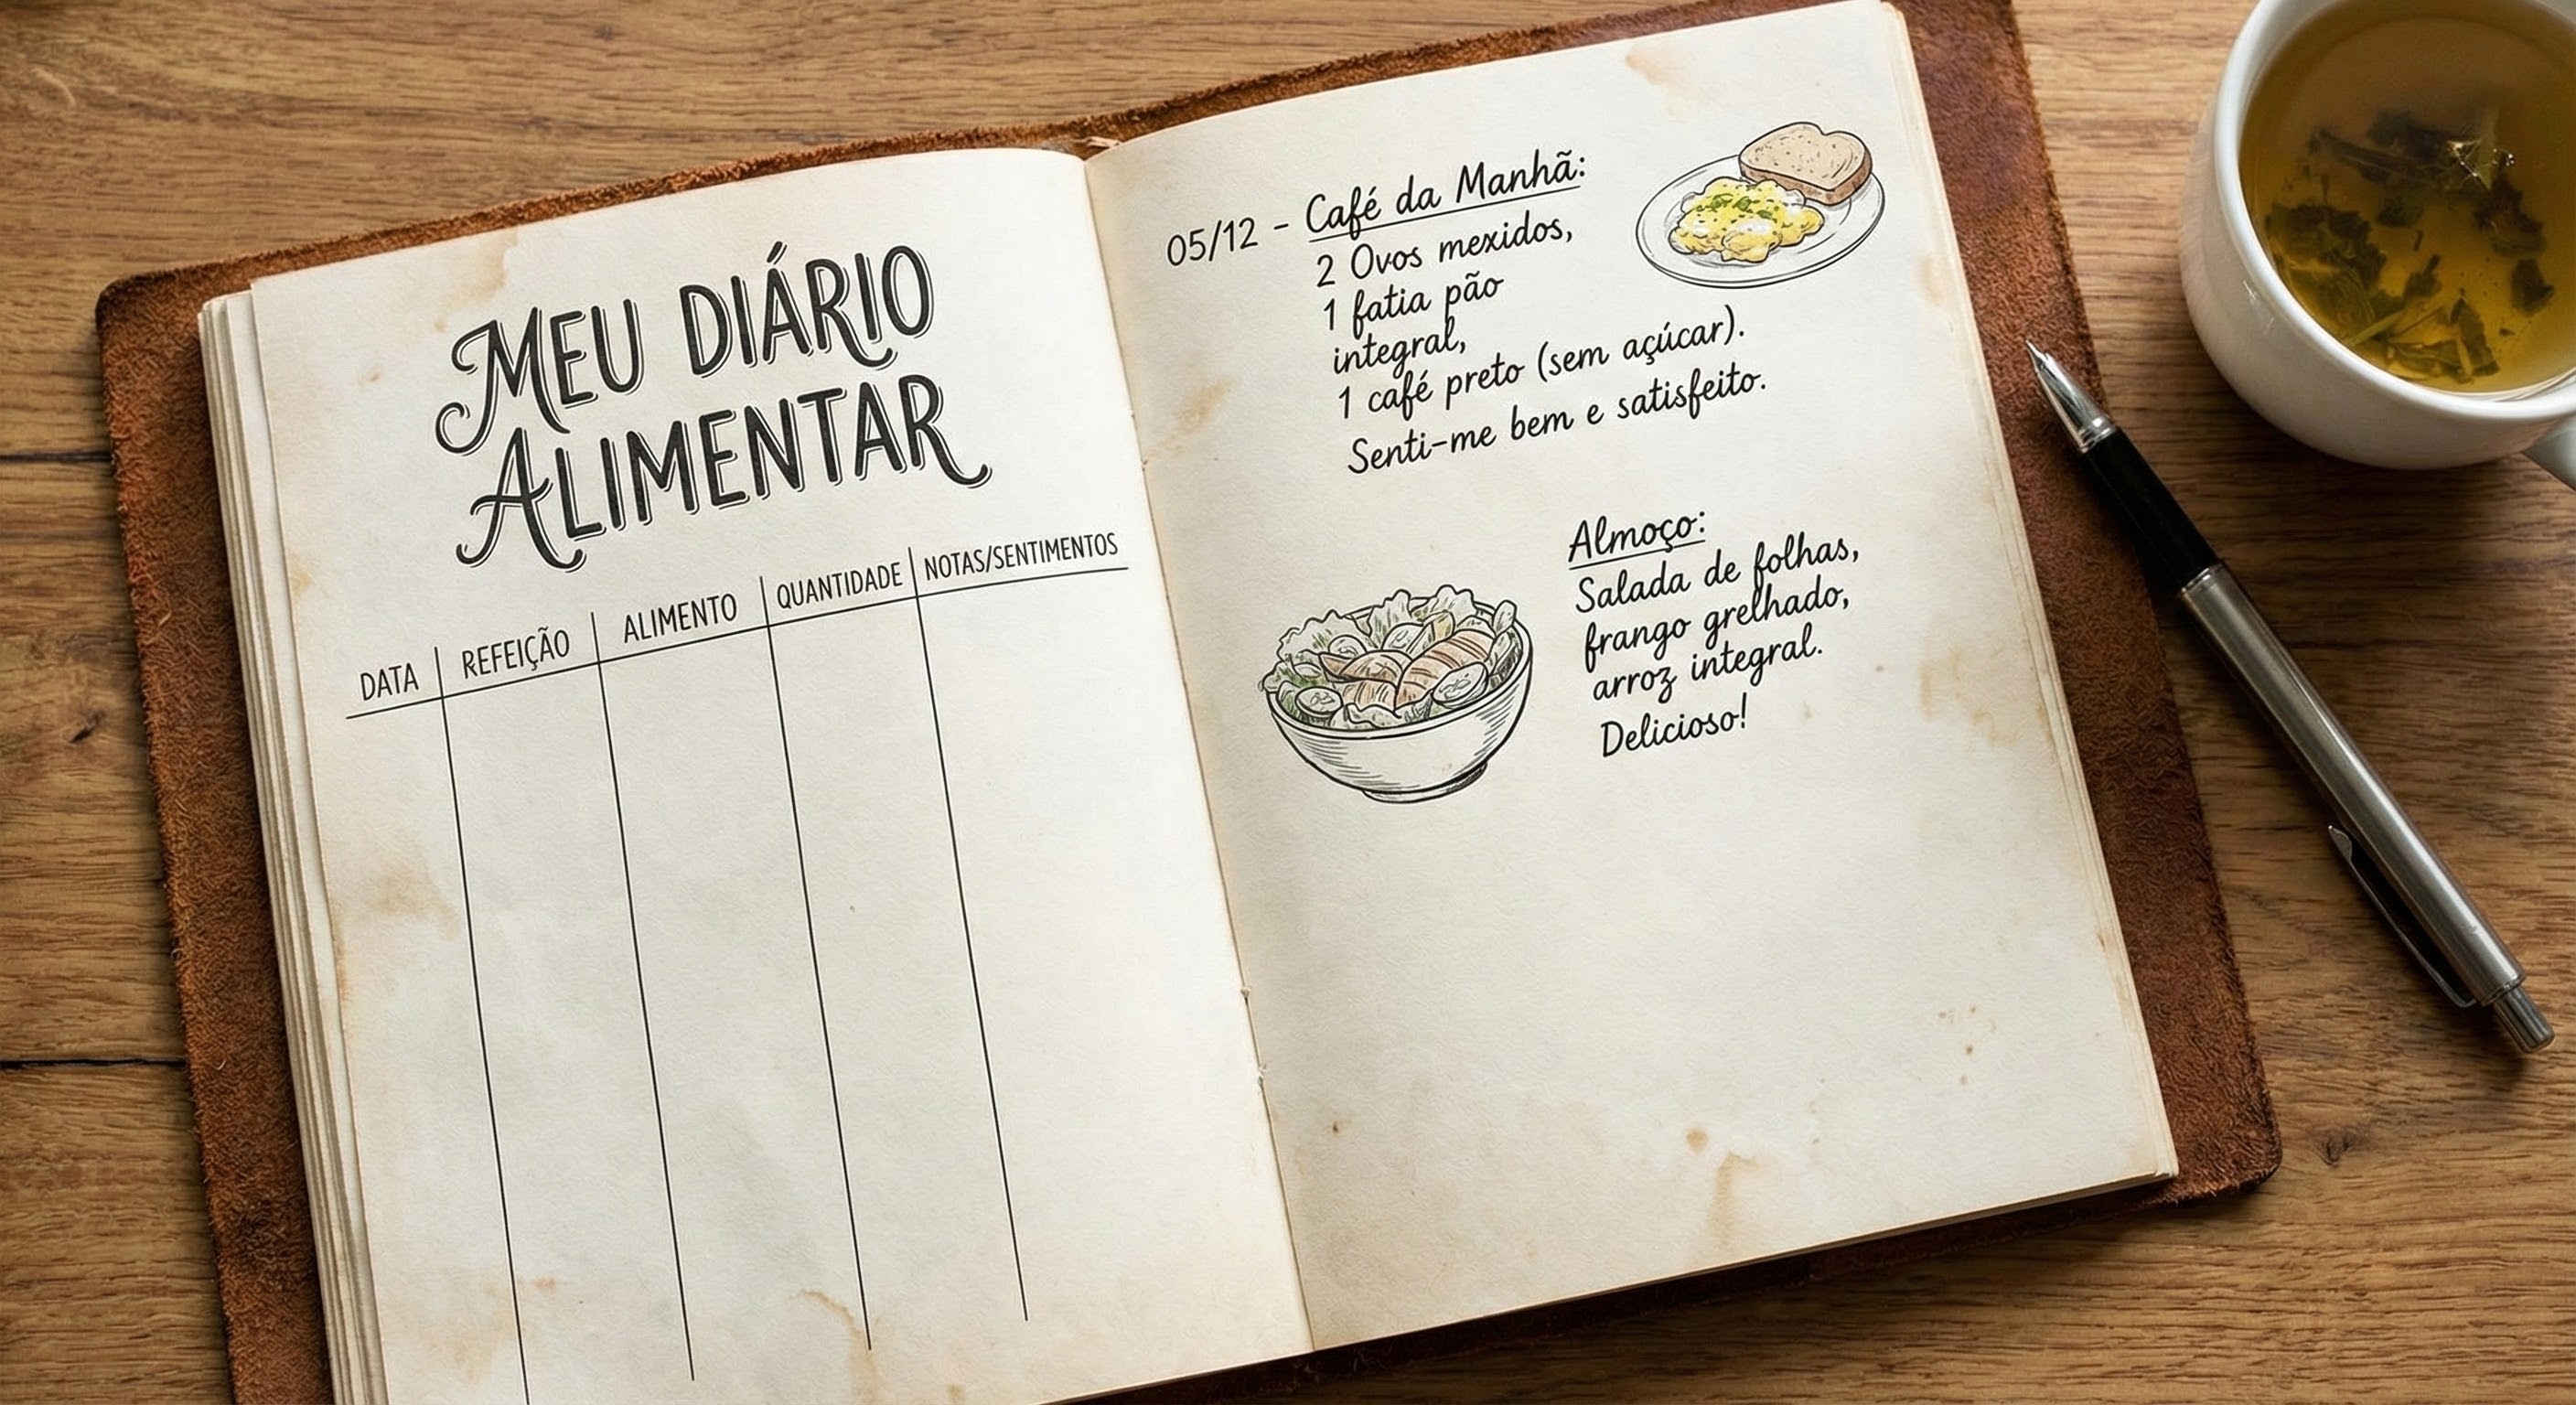 MEU DIÁRIO
ALIMENTAR
DATA REFEIÇÃO ALIMENTO QUANTIDADE NOTAS/SENTIMENTOS
05/12 - Café da Manhã:
2 Ovos mexidos,
1 fatia pão
integral,
1 café preto (sem açúcar).
Senti-me bem e satisfeito.
Almoço:
Salada de folhas,
frango grelhado,
arroz integral.
Delicioso!